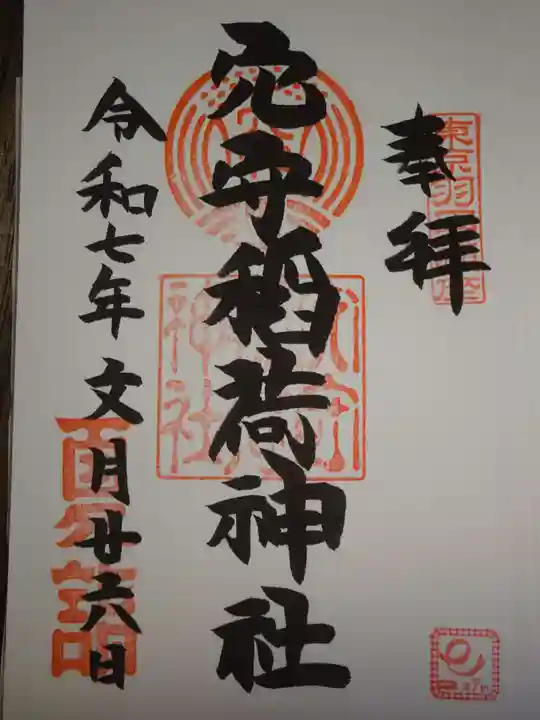 奉拝
東京羽田鎮座
穴守稲荷神社
令和七年文月廿六日